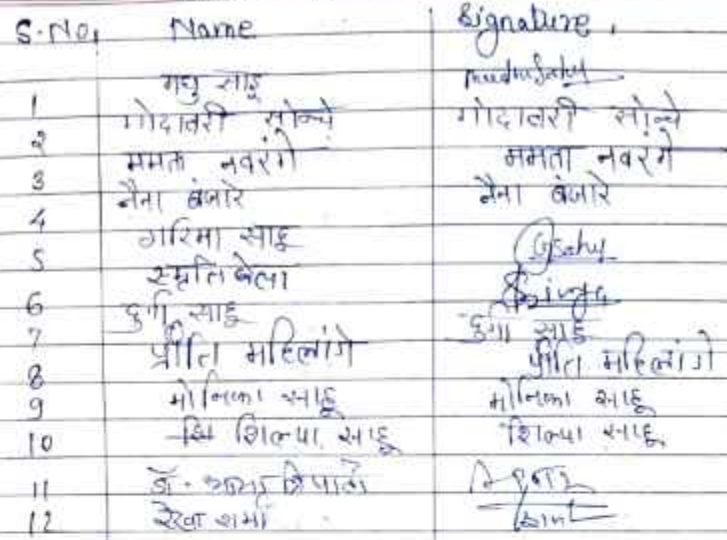 S.No. Name Signature
1 मधु साहू Madhu Sahu
2 गोदावरी सोन्चे गोदावरी सोन्चे
3 ममता नवरंगे ममता नवरंगे
4 नैना बंजारे नैना बंजारे
5 गरिमा साहू GSahu
6 स्मृति बेला
7 दुर्गा साहू दुर्गा साहू
8 प्रीति महिलांगे प्रीति महिलांगे
9 मोनिका साहू मोनिका साहू
10 शिल्पा साहू शिल्पा साहू
11 डॉ. त्रिपाठी
12 रेखा शर्मा